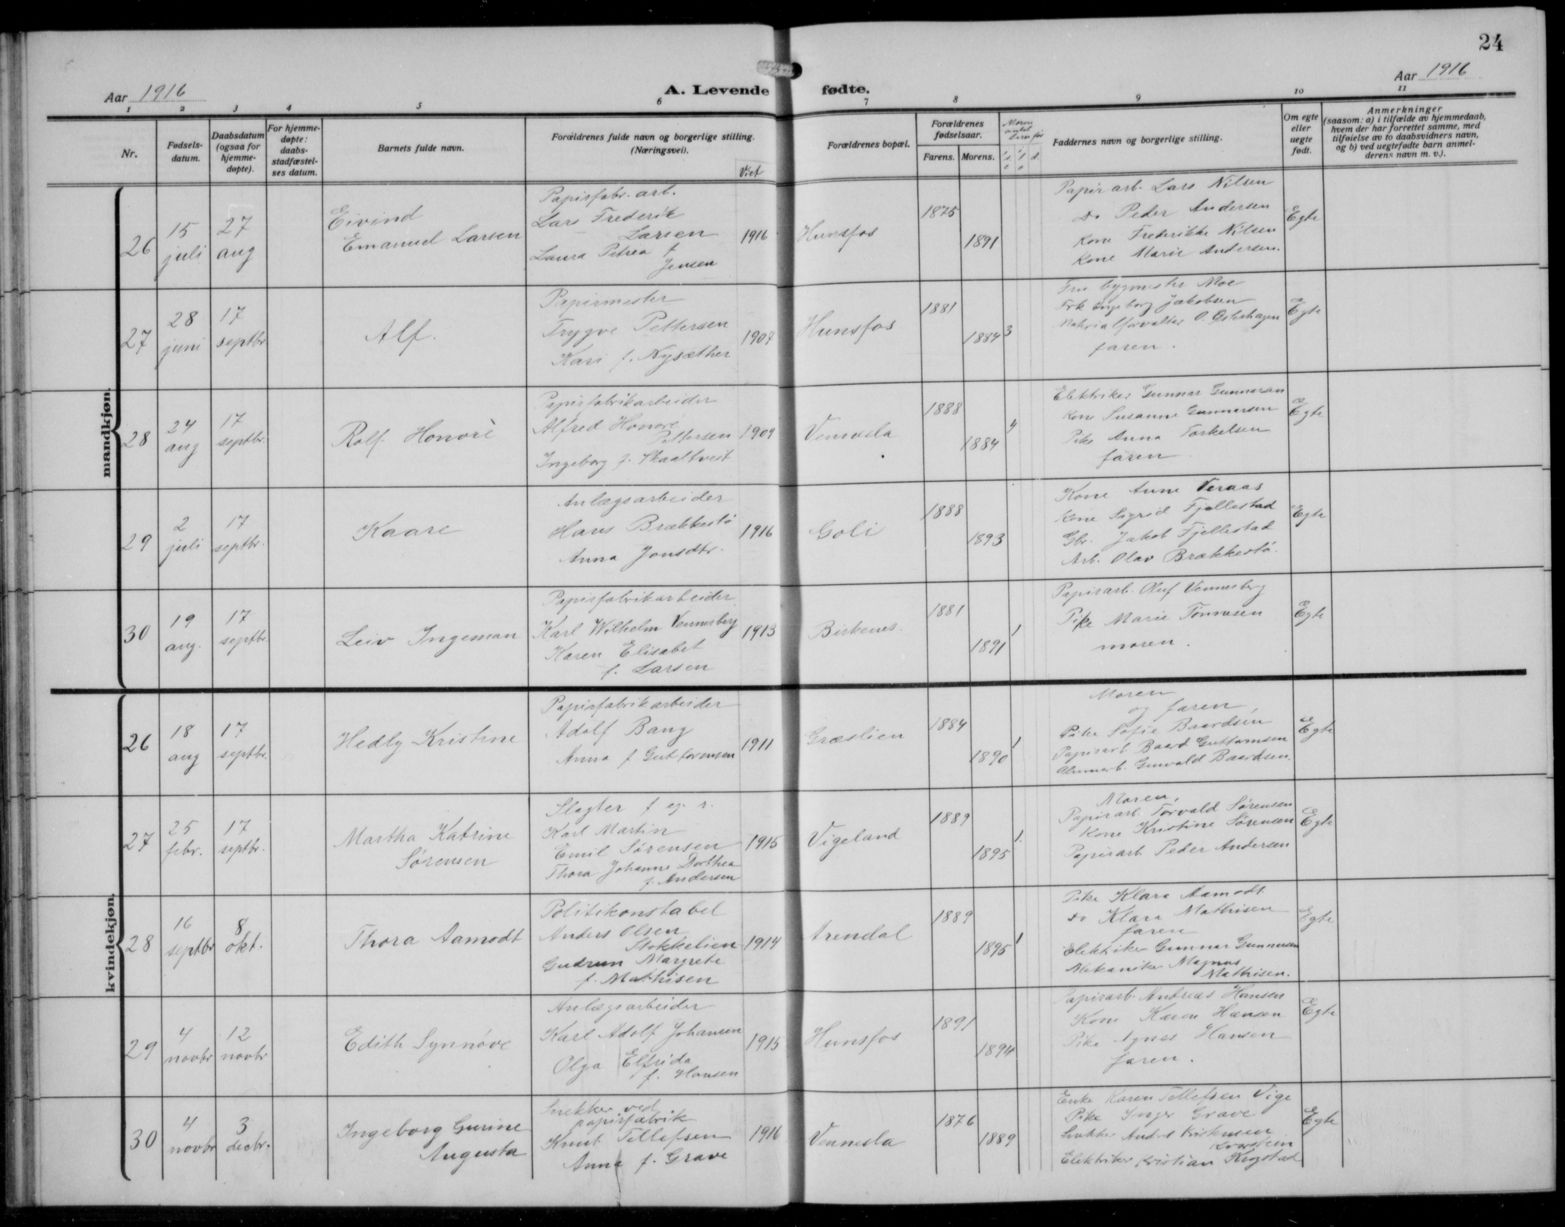 24
Aar 1916
A. Levende fødte.
Aar 1916
1 2 3 4 5 6 7 8 9 10 11
Nr.
Fødsels-
datum.
Daabsdatum
(ogsaa for
hjemme-
døpte).
For hjemme-
døpte:
daabs-
stadfæstel-
ses datum.
Barnets fulde navn.
Forældrenes fulde navn og borgerlige stilling.
(Næringsvei).
Viet
Forældrenes bopæl.
Forældrenes
fødselsaar.
Farens. Morens.
Faddernes navn og borgerlige stilling.
Om egte
eller
uegte
født.
Anmerkninger
(saasom: a) i tilfælde av hjemmedaab,
hvem der har forrettet samme, med
tilføielse av to daabsvidners navn,
og b) ved uegtefødte barn anmel-
derens navn m. v.).
mandkjøn.
26
15
juli
27
aug
Eivind
Emanuel Larsen
Papirfabr. arb.
Lars Frederik
Larsen
Laura Petrea f
Jensen
1916
Hunsfos
1875
1891
Papirarb. Lars Nilsen
Do Peder Andersen
Kone Frederikke Nilsen
Kone Marie Andersen.
Egte
27
28
juni
17
septbr.
Alf.
Papirmester
Trygve Pettersen
Kari f. Nysæther
1909
Hunsfos
1881
1884
3
Fru bygmester Moe
Frk Ingeborg Jakobsen
faren.
Egte
28
24
aug
17
septbr.
Rolf Honorè
Papirfabrikarbeider
Alfred Honorè
Pettersen
Ingeborg f. Skaaltveit
1909
Vennesla
1888
1884
4
Elektriker Gunnar Gunnarsen
Kone Susanne Gunnarsen
Pike Anna Torkelsen
faren
Egte
29
2
juli
17
septbr.
Kaare
Anlægsarbeider
Hans Brækkestø
Anna Jonsdtr.
1916
Goli
1888
1893
Kone Anne Veraas
Kone Sigrid Fjellestad
Gbr. Jakob Fjellestad
Arb. Olav Brækkestø.
Egte
30
19
aug.
17
septbr.
Leiv Ingeman
Papirfabrikarbeider
Karl Wilhelm Vennesberg
Karen Elisabet
f. Larsen
1913
Birkenes.
1881
1891
1
Papirarb. Oluf Vennesberg
Pike Marie Tønnesen
moren.
Egte
kvindekjøn.
26
18
aug
17
septbr.
Hedly Kristine
Papirfabrikarbeider
Adolf Bang
Anna f Guttormsen
1911
Græslien
1884
1890
1
Moren
og faren,
Pike Sofie Baardsen
Papirarb Baard Guttormsen
Gunvald Baardsen.
Egte
27
25
febr.
17
septbr.
Martha Katrine
Sørensen
Slagter f. eg. r.
Karl Martin
Emil Sørensen
Thora Johanne Dorthea
f. Andersen
1915
Vigeland
1889
1895
1
Moren,
Papirarb Torvald Sørensen
Kone Kristine Sørensen
Papirarb Peder Andersen
Egte
28
16
septbr
8
okt.
Thora Aamodt
Politikonstabel
Anders Olsen
Stokkelien
Gudrun Margrete
f. Mathisen
1914
Arendal
1889
1895
1
Pike Klara Aamodt
Do Klara Mathisen
faren
Elektriker Gunnar Gunnarsen
Mekaniker Magnus
Mathisen.
Egte
29
4
novbr
12
novbr
Edith Synnøve
Anlægsarbeider
Karl Adolf Johansen
Olga Elfrida
f. Hansen
1915
Hunsfos
1891
1894
Papirarb. Andreas Hansen
Kone Karen Hansen
Pike Agnes Hansen
faren.
Egte
30
4
novbr
3
decbr.
Ingeborg Gurine
Augusta
Snekker ved
papirfabrik
Knut Tellefsen
Anna f. Grave
1916
Vennesla
1876
1889
Enke Karen Tellefsen Vige
Pike Inger Grave
Elektriker Kristian Krogstad
Egte